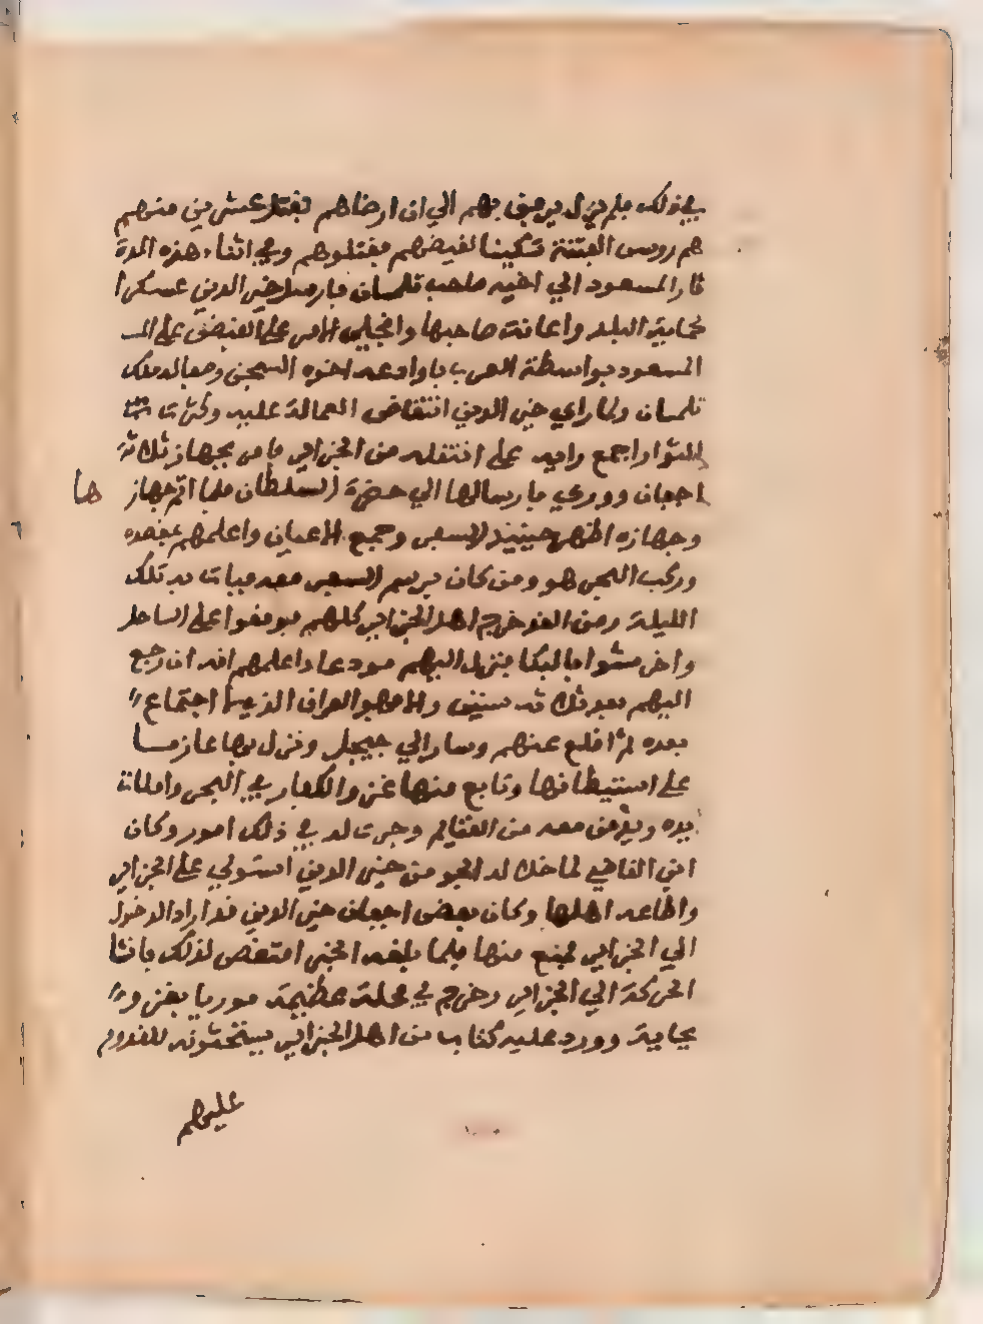 في ذلك فلم يزل يرغب بهم الي ان ارضاهم بقتل عشرين منهم
هم روس الفتنة تسكينا لغيضهم فقتلوهم وفي اثناء هذه المدة
ثار المسعود الي اخيه صاحب تلمسان فارسل خير الدين عسكرا
لحماية البلد واعانة صاحبها وانجلي الامر علي القبض علي المـ
المسعود بواسطة العرب فاودعه اخوه السجن وصفا له ملك
تلمسان ولما راي خير الدين انتقاض العمالة عليه وكثرت
الثوار اجمع رايه علي انتقله من الجزائر فامر بجهاز ثلاثة
اجفان ووري بارسالها الي حضرة السلطان فلما اتم جهاز ها
وجهازه اظهر حينيذ السفر وجمع الاعيان واعلمهم بقصده
وركب البحر هو ومن كان يريد السفر معه فبات به تلك
الليلة ومن الغد خرج اهل الجزائر كلهم فوقفوا علي الساحل
واجهشوا بالبكا فنزل اليهم مودعا واعلمهم انه ان رجع
اليهم بعد ثلاثة سنين والا فهو الفراق الذي لا اجتماع
بعده ثم اقلع عنهم وسار الي جيجل ونزل بها عازما
علي استيطانها وتابع منها غزو الكفار في البحر وامتلات
يده ويد من معه من الغنايم وجرت له في ذلك امور وكان
ابن القاضي لما خلا له الجو من خير الدين استولي علي الجزائر
واطاعه اهلها وكان بعض اجفان خير الدين قد اراد الدخول
الي الجزائر فمنع منها فلما بلغه الخبر امتعض لذلك فانشا
الحركة الي الجزائر وخرج في محلة عظيمة موريا بغزو
بجاية وورد عليه كتاب من اهل الجزائر يستحثونه للقدوم
عليهم